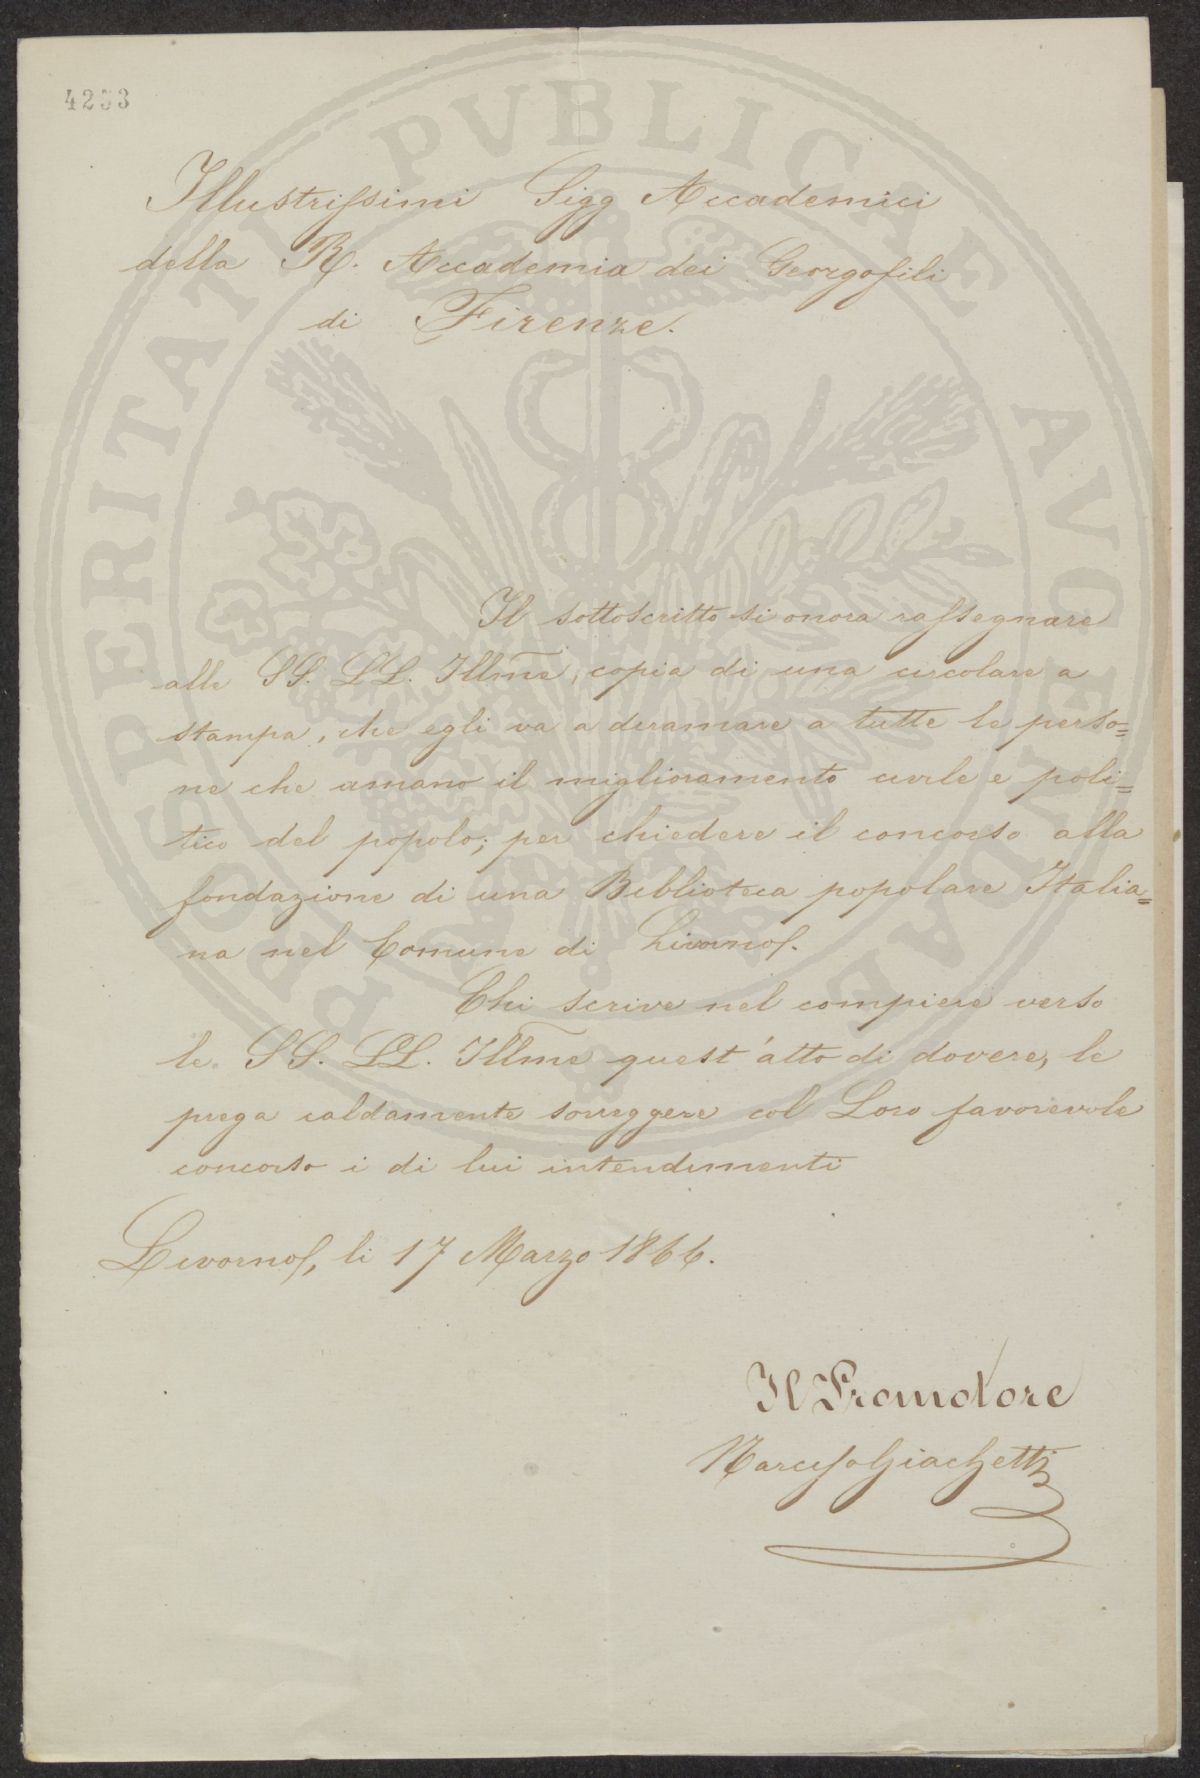 4253
PROSPERITATI PVBLICAE AVGENDAE
Illustrissimi Sigg Accademici
della R. Accademia dei Georgofili
di Firenze.
Il sottoscritto si onora rassegnare
alle SS. LL. Illme, copia di una circolare a
stampa, che egli va a deramare a tutte le perso=
ne che amano il miglioramento civile e poli=
tico del popolo; per chiedere il concorso alla
fondazione di una Biblioteca popolare Italia=
na nel Comune di Livorno.
Chi scrive nel compiere verso
le SS. LL. Illme quest'atto di dovere, le
prega caldamente sorreggere col Loro favorevole
concorso i di lui intendimenti
Livorno, li 17 Marzo 1866.
Il Promotore
Narciso Giachetti